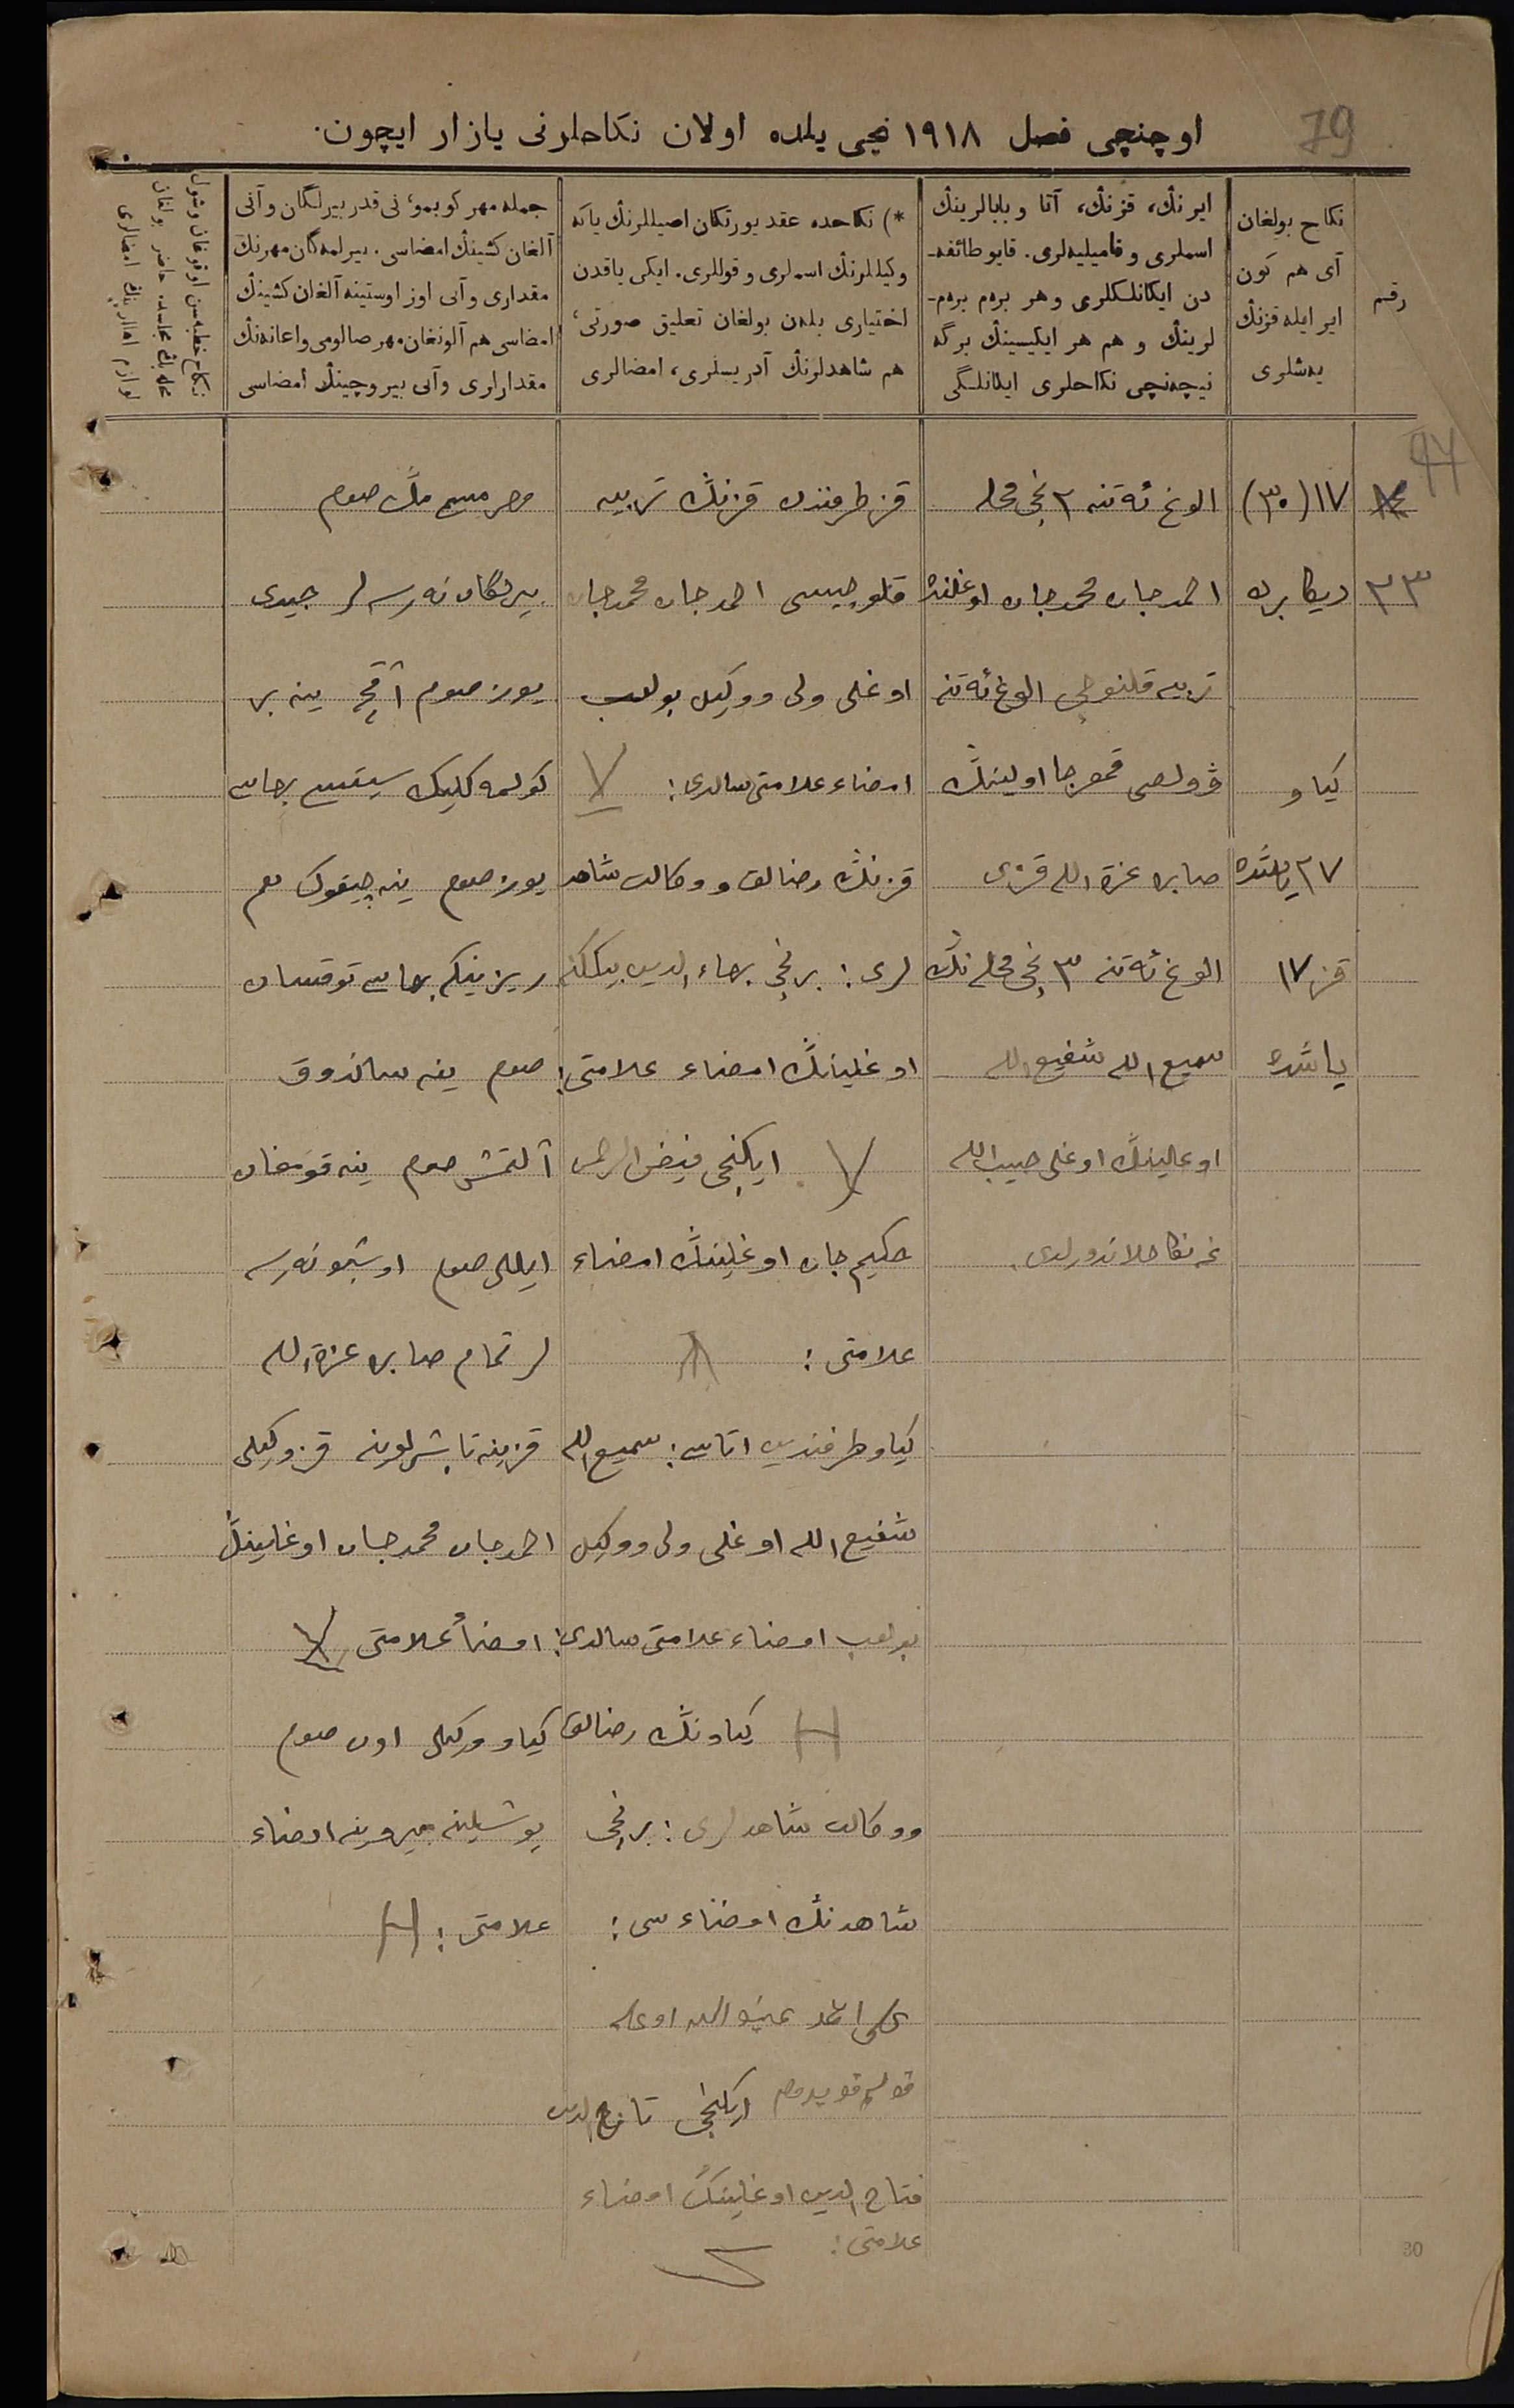 79
اوچنچی فصل ١٩١٨ نچی یلده اولان نکاحلرنی یازار ایچون.
رقم
نکاح بولغان
آی هم کون
ایر ایله قزنڭ
یه‌شلری
ایرنڭ، قزنڭ، آتا وبابالرینڭ
اسملری وفامیلیه‌لری. قایو طائفه‌ـ
دن ایکانلکلری وهر برم برم‌ـ
لرینڭ و هم هر ایکیسینڭ برگه
نیچه‌نچی نکاحلری ایکانلگی
*) نکاحده عقد یورتکان اصیللرنڭ یاکه
وکیللرنڭ اسملری وقوللری. ایکی یاقدن
اختیاری بلەن بولغان تعلیق صورتی،
هم شاهدلرنڭ آدریسلری، امضالری
جمله مهر کوبمو، نی قدر بیرلگان وآنی
آلغان کشینڭ امضاسی. بیرلمه‌گان مهرنڭ
مقداری وآنی اوز اوستینه آلغان کشینڭ
امضاسی هم آلونغان مهر صالومی واعانه‌نڭ
مقدارلری وآنی بیروچینڭ امضاسی
نکاح خطبه‌سن اوقوغان وشول
مجلسده حاضر بولغان
امضالری
94
٣٣
١٧ (٣٠)
دیکابرده
کیاو
٢٧ یاشنده
قز ١٧
یاشده
الوغ ئه‌تنه ٢ نچی محله
احمدجان محمدجان اوغلنڭ
تربیه قلنوچی الوغ ئه‌تنه
ڤولصی قمرجا اولینڭ
صابره عزة الله قزی
الوغ ئه‌تنه ٣ نچی محله‌نڭ
سمیع الله شفیع الله
اوغلینڭ اوغلی حبیب الله
غه نکاحلاندورلدی.
قز طرفندن قزنڭ تربیه
قلوچیسی احمدجان محمدجان
اوغلی ولی ووکیل بولوب
امضاء علامتی سالدی: V
قزنڭ رضالق ووکالت شاهد
لری: برنچی بهاء الدین
اوغلینڭ امضاء علامتی:
V ایکنچی فیض الرحمن
حکیم جان اوغلینڭ امضاء
علامتی:
کیاو طرفندن اتاسی: سمیع الله
شفیع الله اوغلی ولی ووکیل
بولوب امضاء علامتی سالدی:
H کیاونڭ رضالق
ووکالت شاهدلری: برنچی
شاهدنڭ امضاءسی:
اوغلی
قولم قویدم ایکنچی تاج الدین
فتاح الدین اوغلینڭ امضاء
علامتی:
مهر مسمی مڭ صوم
بیرلگان نه‌رسه‌لر جیدی
یوز صوم آقچه ینه بر
کولمه‌کلیک سیتسی بهاسی
یوز صوم ینه چیتوک هم
ریزینیکه بهاسی توقسان
صوم ینه ساندوق
آلتمش صوم ینه قومغان
ایللی صوم اوشبو نه‌رسه
لر تمام صابره عزة الله
قزینه تابشرلوینه قز وکیلی
احمدجان محمدجان اوغلینڭ
امضاء علامتی
کیاو وکیلی اون صوم
پوشلینه بیروینه امضاء
علامتی: H
80